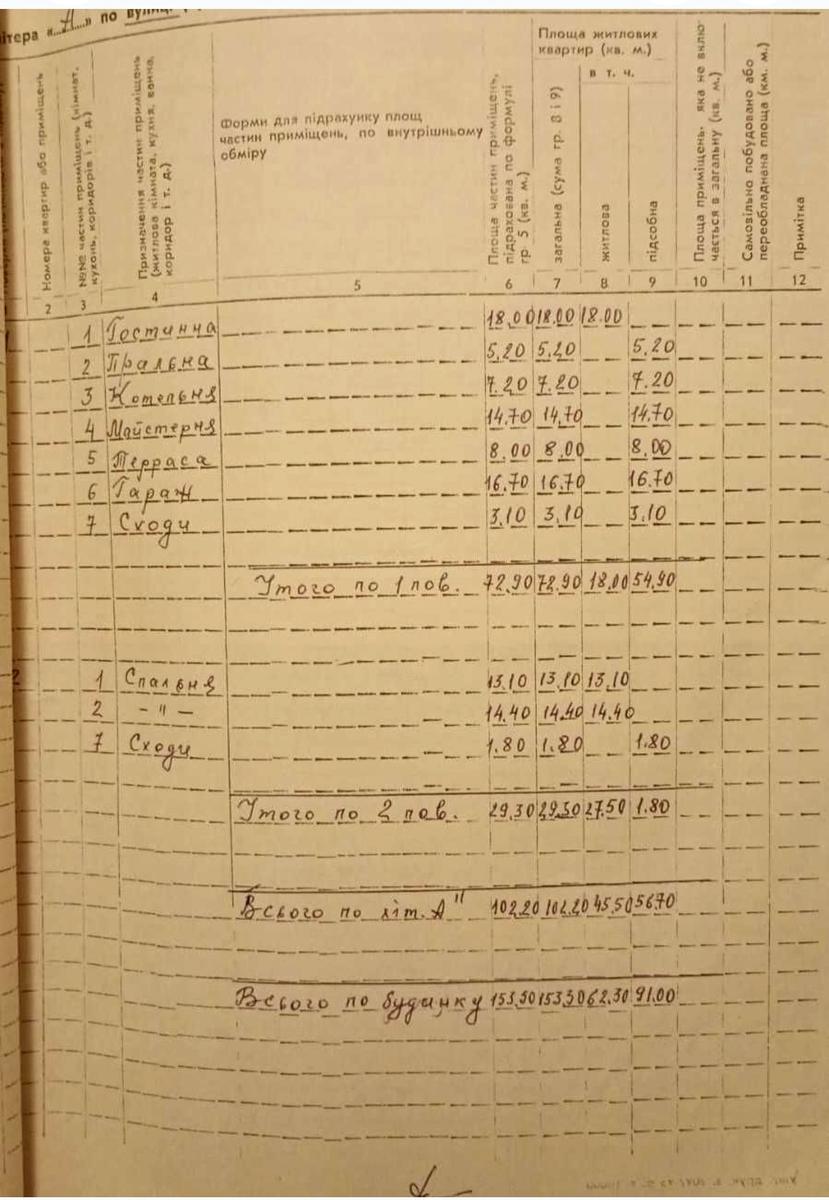 літера «А» по вулиці
Номера квартир або приміщень
№№ частин приміщень (кімнат, кухонь, коридорів і т. д.)
Призначення частин приміщень (житлова кімната, кухня, ванна, коридор і т. д.)
Форми для підрахунку площ
частин приміщень, по внутрішньому
обміру
Площа частин приміщень, підрахована по формулі гр 5 (кв. м.)
Площа житлових
квартир (кв. м.)
загальна (сума гр. 8 і 9)
в т. ч.
житлова
підсобна
Площа приміщень, яка не включається в загальну (кв. м.)
Самовільно побудовано або переобладнана площа (км. м.)
Примітка
2 3 4 5 6 7 8 9 10 11 12
1 Гостинна 18,00 18.00 18.00
2 Пральна 5,20 5,20 5,20
3 Котельня 7.20 7.20 7.20
4 Майстерня 14.70 14,70 14.70
5 Терраса 8.00 8,00 8,00
6 Гараж 16.70 16.70 16.70
7 Сходи 3,10 3,10 3,10
Утого по 1 пов. 72,90 72,90 18,00 54,90
2 1 Спальня 13,10 13,10 13,10
2 – " – 14.40 14.40 14.40
7 Сходи 1.80 1.80 1.80
Утого по 2 пов. 29,30 29,30 27.50 1.80
Всього по літ. А" 102,20 102,20 45,50 56.70
Всього по будинку 153,30 153,30 62,30 91.00